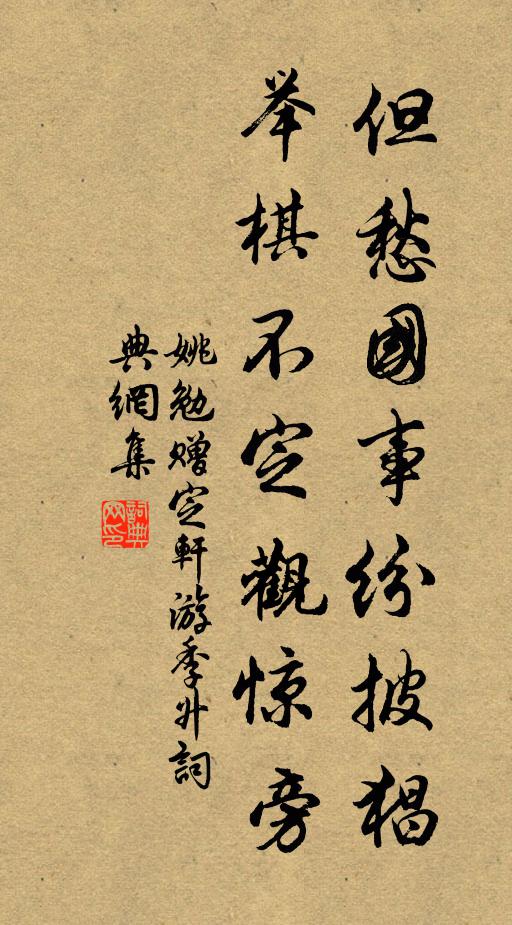 但愁國事纷披猖
举棋不定觀惊旁
姚勉赠定軒游季升詞
典網集
詞典網印